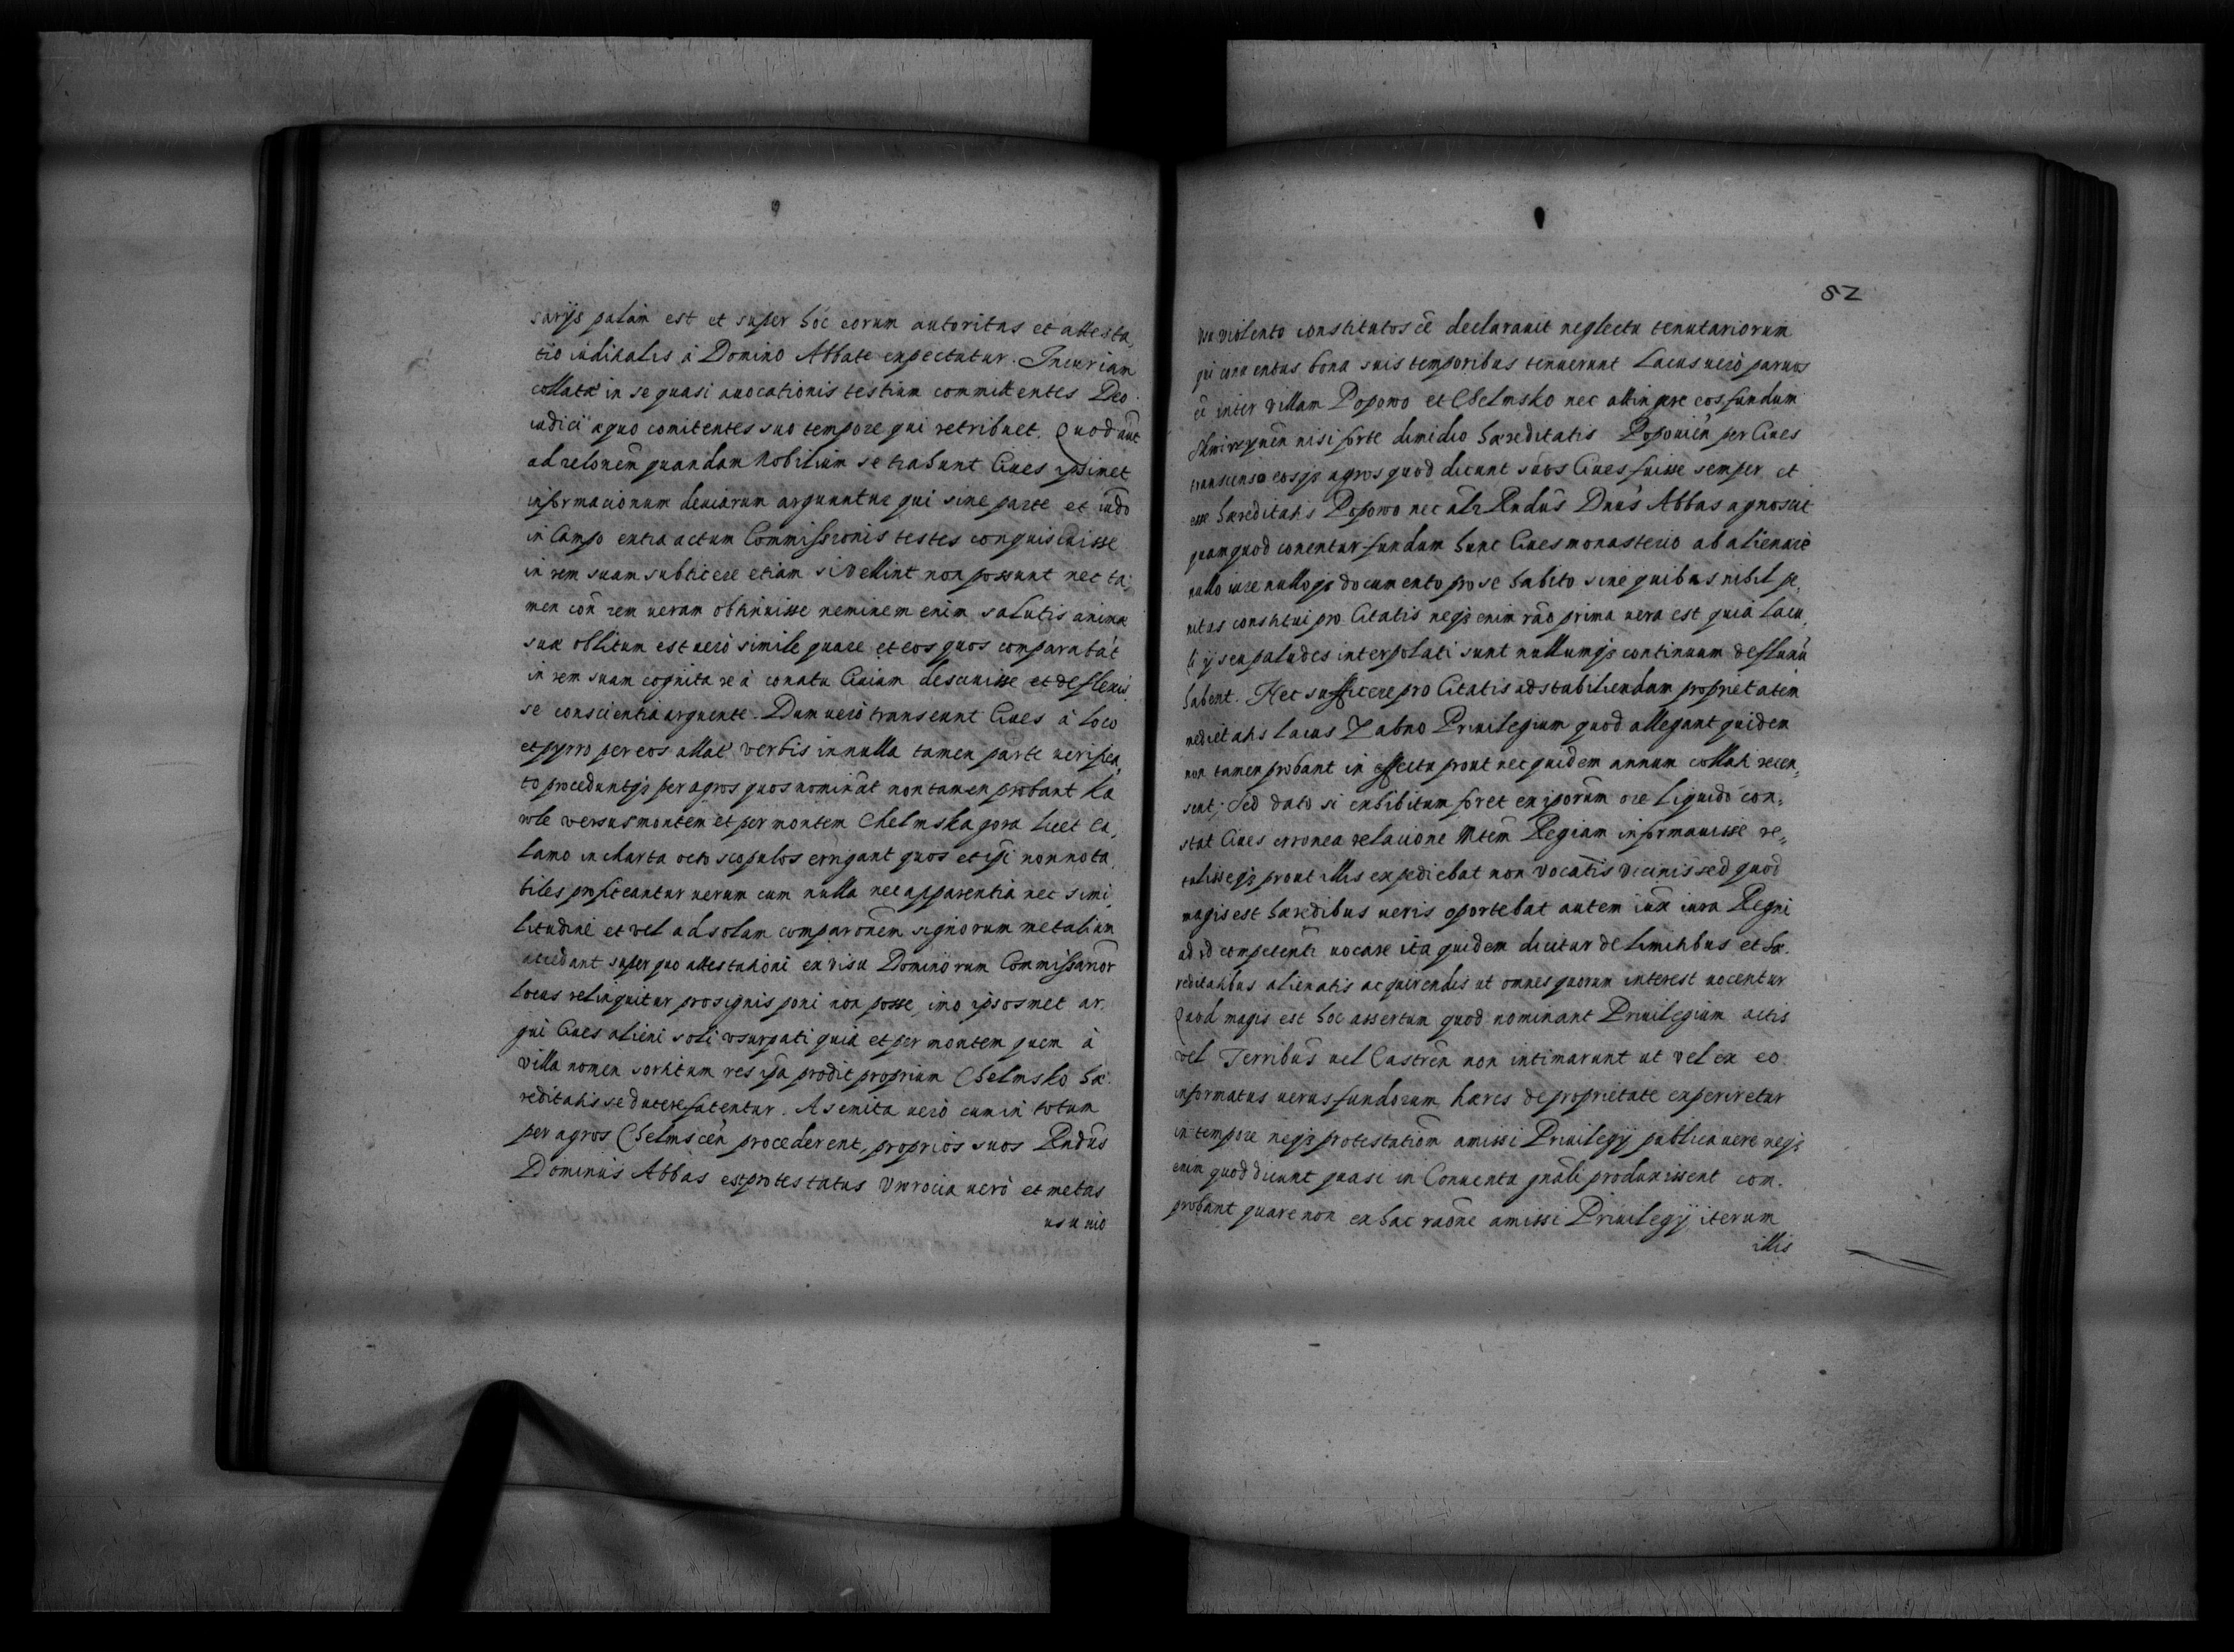 sarijs palam est et super hoc eorum autoritas et attesta,
tio iudicialis à Domino Abbate expectatur. Incuriam
collatā in se quasi auocationis testium committentes Deo
iudici a quo comitentes suo tempore qui retribuet. Quod aut̄
ad relōnem quandam Nobilium se trahunt Ciues ipsimet
informacionum deuiarum arguuntur qui sine parte et iudō
in Campo extra actum Commissionis testes conquisiuisse
in rem suam subticere etiam si vellint non possunt nec ta,
men con̄ rem ueram obtinuisse neminem enim salutis animæ
suæ oblitum est uerò simile quare et eos quos comparabāt
in rem suam cognita re à conatu Ciuium desciuisse et deflexis,
se conscientia arguente. Dum uerò transeunt Ciues à loco
et pyrro per eos allat verbis in nulla tamen parte uerifica,
to proceduntqȝ per agros quos nomināt non tamen probant ka
wle versus montem et per montem Chelmska gora licet Ca,
lamo in charta octo scopulos errigant quos et ipsi non nota,
biles profiteantur uerum cum nulla nec apparentia nec simi,
litudine et vel ad solam comparōnem signorum metalium
accedant super quo attestationi ex visu Dominorum Commissarior
locus relinquitur pro signis poni non posse, imo ipsosmet ar,
gui Ciues alieni soli vsurpati quia et per montem quem à
villa nomen sortitum res ipa prodit proprium Chelmsko hæ,
reditatis se ducere fatentur. A semita uerò cum in totum
per agros Chelmscen̄ procederent, proprios suos Rndūs
Dominus Abbas est protestatus Vwrocia uerò et metas
usu uio

52
usu violento constitutos ēē declarauit neglectu tenutariorum
qui conuentus bona suis temporibus tenuerunt Lacus uerò paruos
ēē inter villam Popowo et Chelmsko nec attingere eos fundum
nisi forte dimidio hæreditatis Popouien̄ per Ciues
transcenso eosqȝ agros quod dicunt suos Ciues fuisse semper et
esse hæreditatis Popowo nec alr̄ Rndūs Dnūs Abbas agnoscit
quam quod conentur fundum hunc Ciues monasterio ab alienare
nullo iure nulloqȝ documento pro se habito sine quibus nihil pe,
nitus constitui pro Citatis neqȝ enim rāo prima uera est quia lacu,
li ij seu paludes interpolati sunt nullumqȝ continuum defluxū
habent. Nec sufficere pro Citatis ad stabiliendam proprietatem
medietatis lacus Zabno Priuilegium quod allegant quidem
non tamen probant in effectu prout nec quidem annum collati recen,
sent; Sed dato si exhibitum foret ex ipsorum ore liquido con,
stat Ciues erronea relacione Mtem Regiam informauisse re,,
tulisseqȝ prout illis expediebat non vocatis vicinis sed quod
magis est hæredibus ueris oportebat autem iuxta iura Regni
ad id competenti uocare ita quidem dicitur de limitibus et hæ,
reditatibus alienatis acquirendis ut omnes quorum interest uocentur
Quod magis est hoc assertum quod nominant Priuilegium actis
vel Terribus uel Castren̄ non intimarunt ut vel ex eo
informatus uerus fundorum hæres de proprietate experiretur
in tempore neqȝ protestatiōm amissi Priuilegij publicauere neqȝ
enim quod dicunt quasi in Conuentu gnāli produxissent com,
probant quare non ex hac raōne amissi Priuilegij iterum
illis